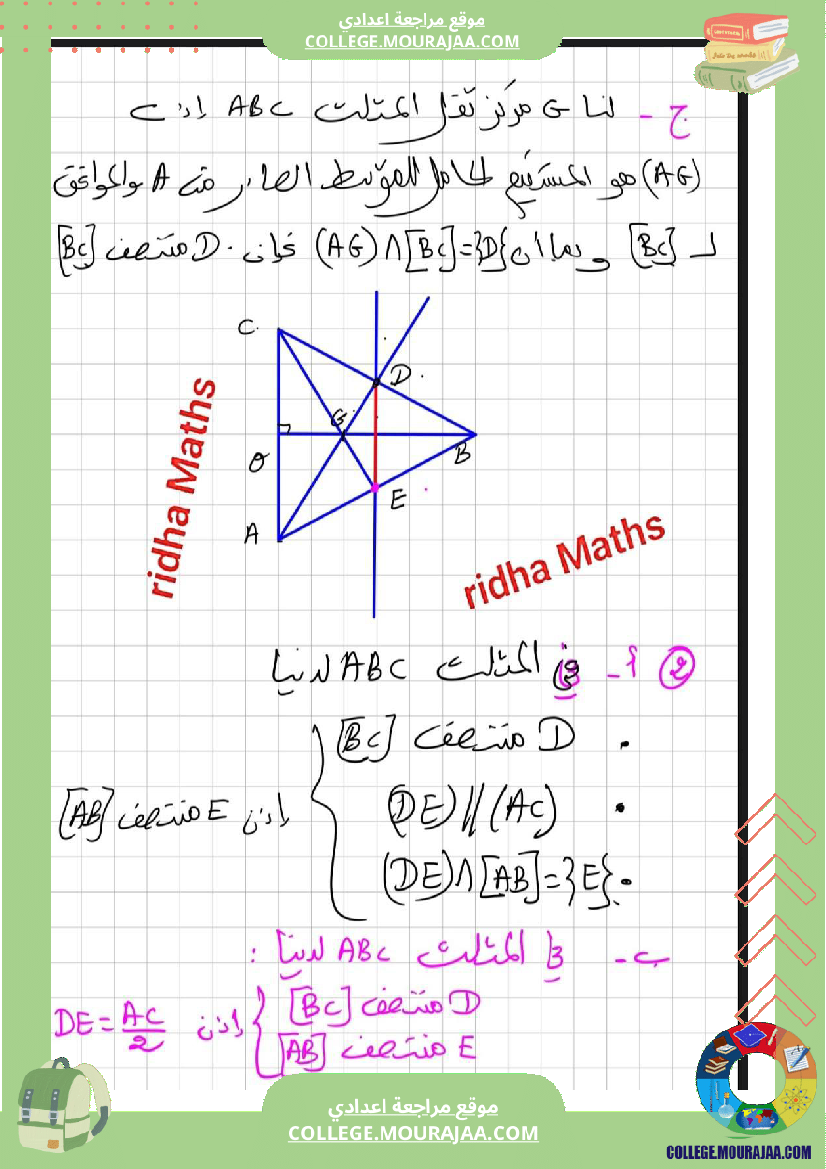 موقع مراجعة اعدادي
COLLEGE.MOURAJAA.COM
ج - لنا G مركز ثقل المثلث ABC إذن
(AG) هو المستقيم الحامل للموسط الصادر من A والموافق
لـ [BC] وبما أن (AG)∩[BC]={D} فإن D منتصف [BC]
C
D
G
O
B
E
A
ridha Maths
ridha Maths
② أ - في المثلث ABC لدينا
• D منتصف [BC]
• (DE)//(AC)
إذن E منتصف [AB]
• (DE)∩[AB]={E}
ب - في المثلث ABC لدينا :
D منتصف [BC]
E منتصف [AB]
إذن DE = AC/2
موقع مراجعة اعدادي
COLLEGE.MOURAJAA.COM
COLLEGE.MOURAJAA.COM